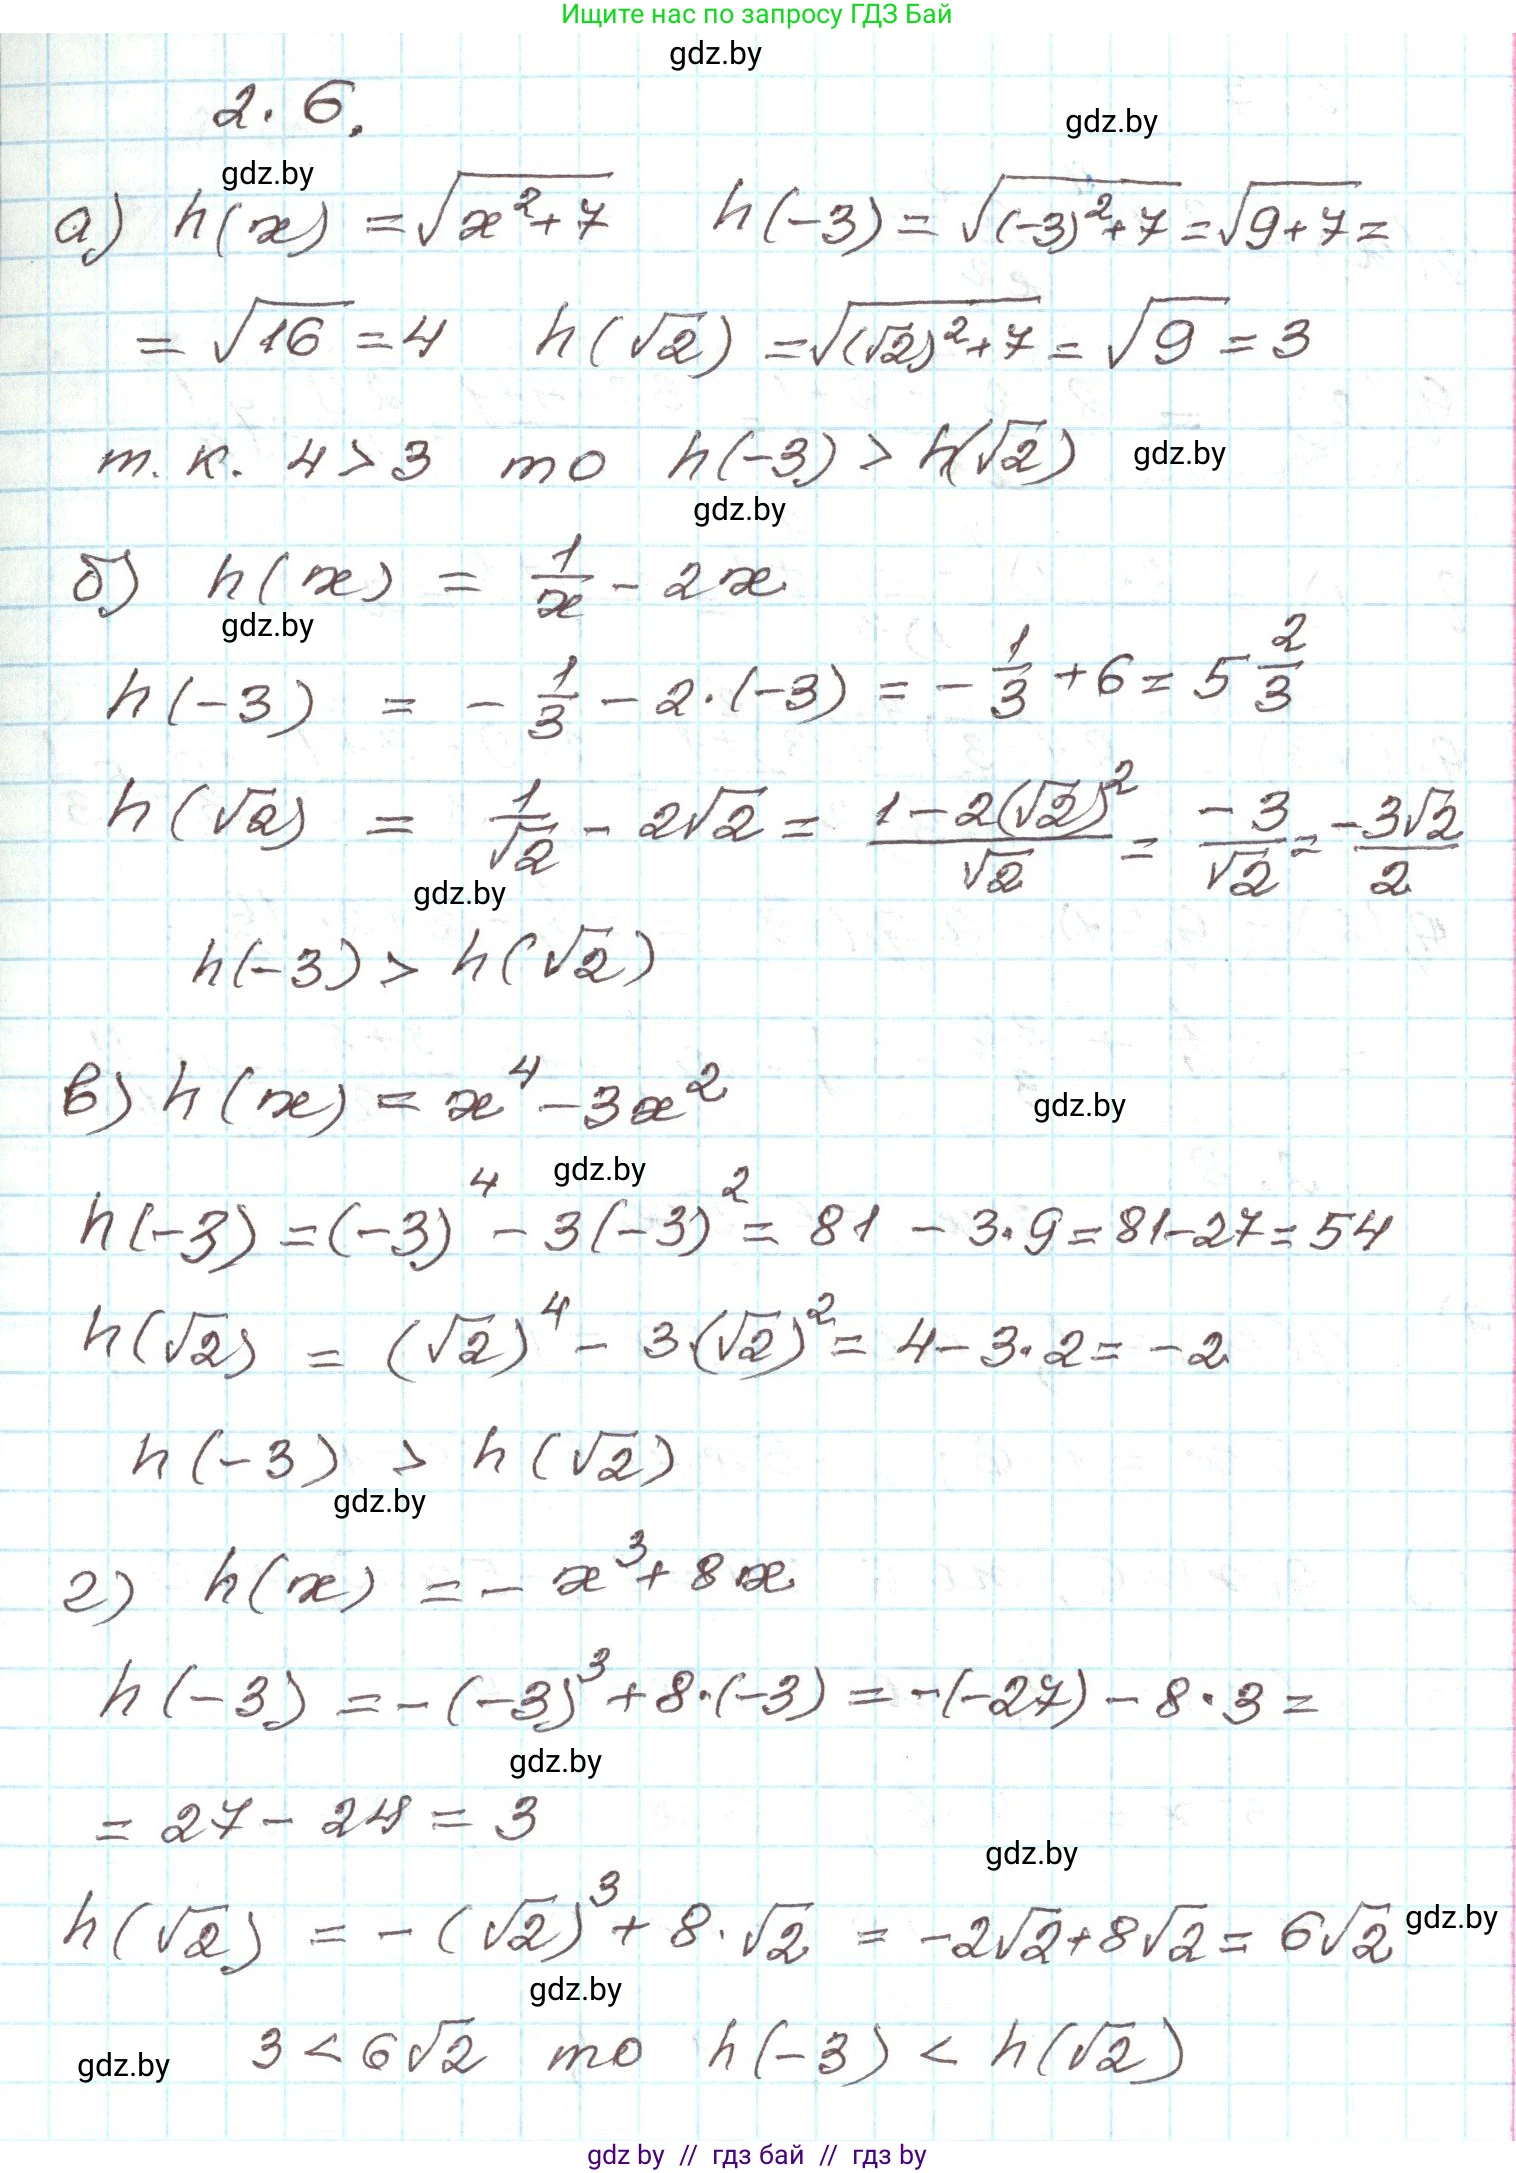 Ищите нас по запросу ГДЗ Бай
gdz.by
2.6.
gdz.by
gdz.by
а) h(x) = √(x²+7) h(-3) = √((-3)²+7) = √(9+7) =
= √16 = 4 h(√2) = √((√2)²+7) = √9 = 3
т.к. 4 > 3 то h(-3) > h(√2) gdz.by
gdz.by
б) h(x) = 1/x - 2x
gdz.by
h(-3) = - 1/3 - 2·(-3) = - 1/3 + 6 = 5 2/3
h(√2) = 1/√2 - 2√2 = (1-2(√2)²)/√2 = -3/√2 = -3√2/2
gdz.by
h(-3) > h(√2)
в) h(x) = x⁴ - 3x²
gdz.by
gdz.by
h(-3) = (-3)⁴ - 3(-3)² = 81 - 3·9 = 81-27 = 54
h(√2) = (√2)⁴ - 3·(√2)² = 4 - 3·2 = -2
h(-3) > h(√2)
gdz.by
г) h(x) = - x³ + 8x
h(-3) = -(-3)³ + 8·(-3) = -(-27) - 8·3 =
gdz.by
= 27 - 24 = 3
gdz.by
h(√2) = -(√2)³ + 8·√2 = -2√2+8√2 = 6√2
gdz.by
gdz.by
3 < 6√2 то h(-3) < h(√2)
gdz.by
gdz.by // гдз бай // гдз by